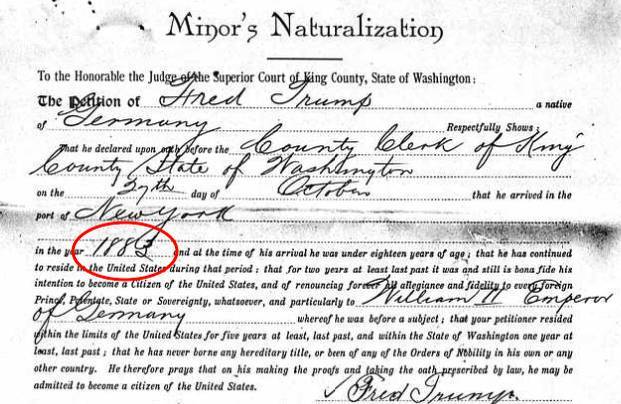 Minor's Naturalization
To the Honorable the Judge of the Superior Court of King County, State of Washington:
The Petition of Fred Trump a native
of Germany Respectfully Shows:
That he declared upon oath before the County Clerk of King
County State of Washington
on the 27th day of October that he arrived in the
port of New York
in the year 1883 and at the time of his arrival he was under eighteen years of age; that he has continued
to reside in the United States during that period; that for two years at least last past it was and still is bona fide his
intention to become a Citizen of the United States, and of renouncing forever all allegiance and fidelity to every foreign
Prince, Potentate, State or Sovereignty, whatsoever, and particularly to William II Emperor
of Germany whereof he was before a subject; that your petitioner resided
within the limits of the United States for five years at least, last past, and within the State of Washington one year at
least, last past; that he has never borne any hereditary title, or been of any of the Orders of Nobility in his own or any
other country. He therefore prays that on his making the proofs and taking the oath prescribed by law, he may be
admitted to become a citizen of the United States.
Fred Trump.